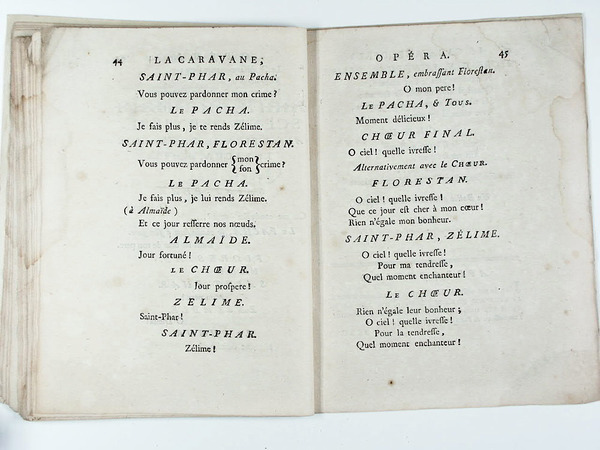 44 LA CARAVANE,
SAINT-PHAR, au Pacha.
Vous pouvez pardonner mon crime?
LE PACHA.
Je fais plus, je te rends Zélime.
SAINT-PHAR, FLORESTAN.
Vous pouvez pardonner {mon / ſon} crime?
LE PACHA.
Je fais plus, je lui rends Zélime.
(à Almaïde)
Et ce jour reſſerre nos nœuds.
ALMAÏDE.
Jour fortuné!
LE CHŒUR.
Jour proſpere!
ZELIME.
Saint-Phar!
SAINT-PHAR.
Zélime!
OPÉRA. 45
ENSEMBLE, embraſſant Floreſtan.
O mon pere!
LE PACHA, & Tous.
Moment délicieux!
CHŒUR FINAL.
O ciel! quelle ivreſſe!
Alternativement avec le CHŒUR.
FLORESTAN.
O ciel! quelle ivreſſe!
Que ce jour eſt cher à mon cœur!
Rien n'égale mon bonheur.
SAINT-PHAR, ZÉLIME.
O ciel! quelle ivreſſe!
Pour ma tendreſſe,
Quel moment enchanteur!
LE CHŒUR.
Rien n'égale leur bonheur;
O ciel! quelle ivreſſe!
Pour la tendreſſe,
Quel moment enchanteur!